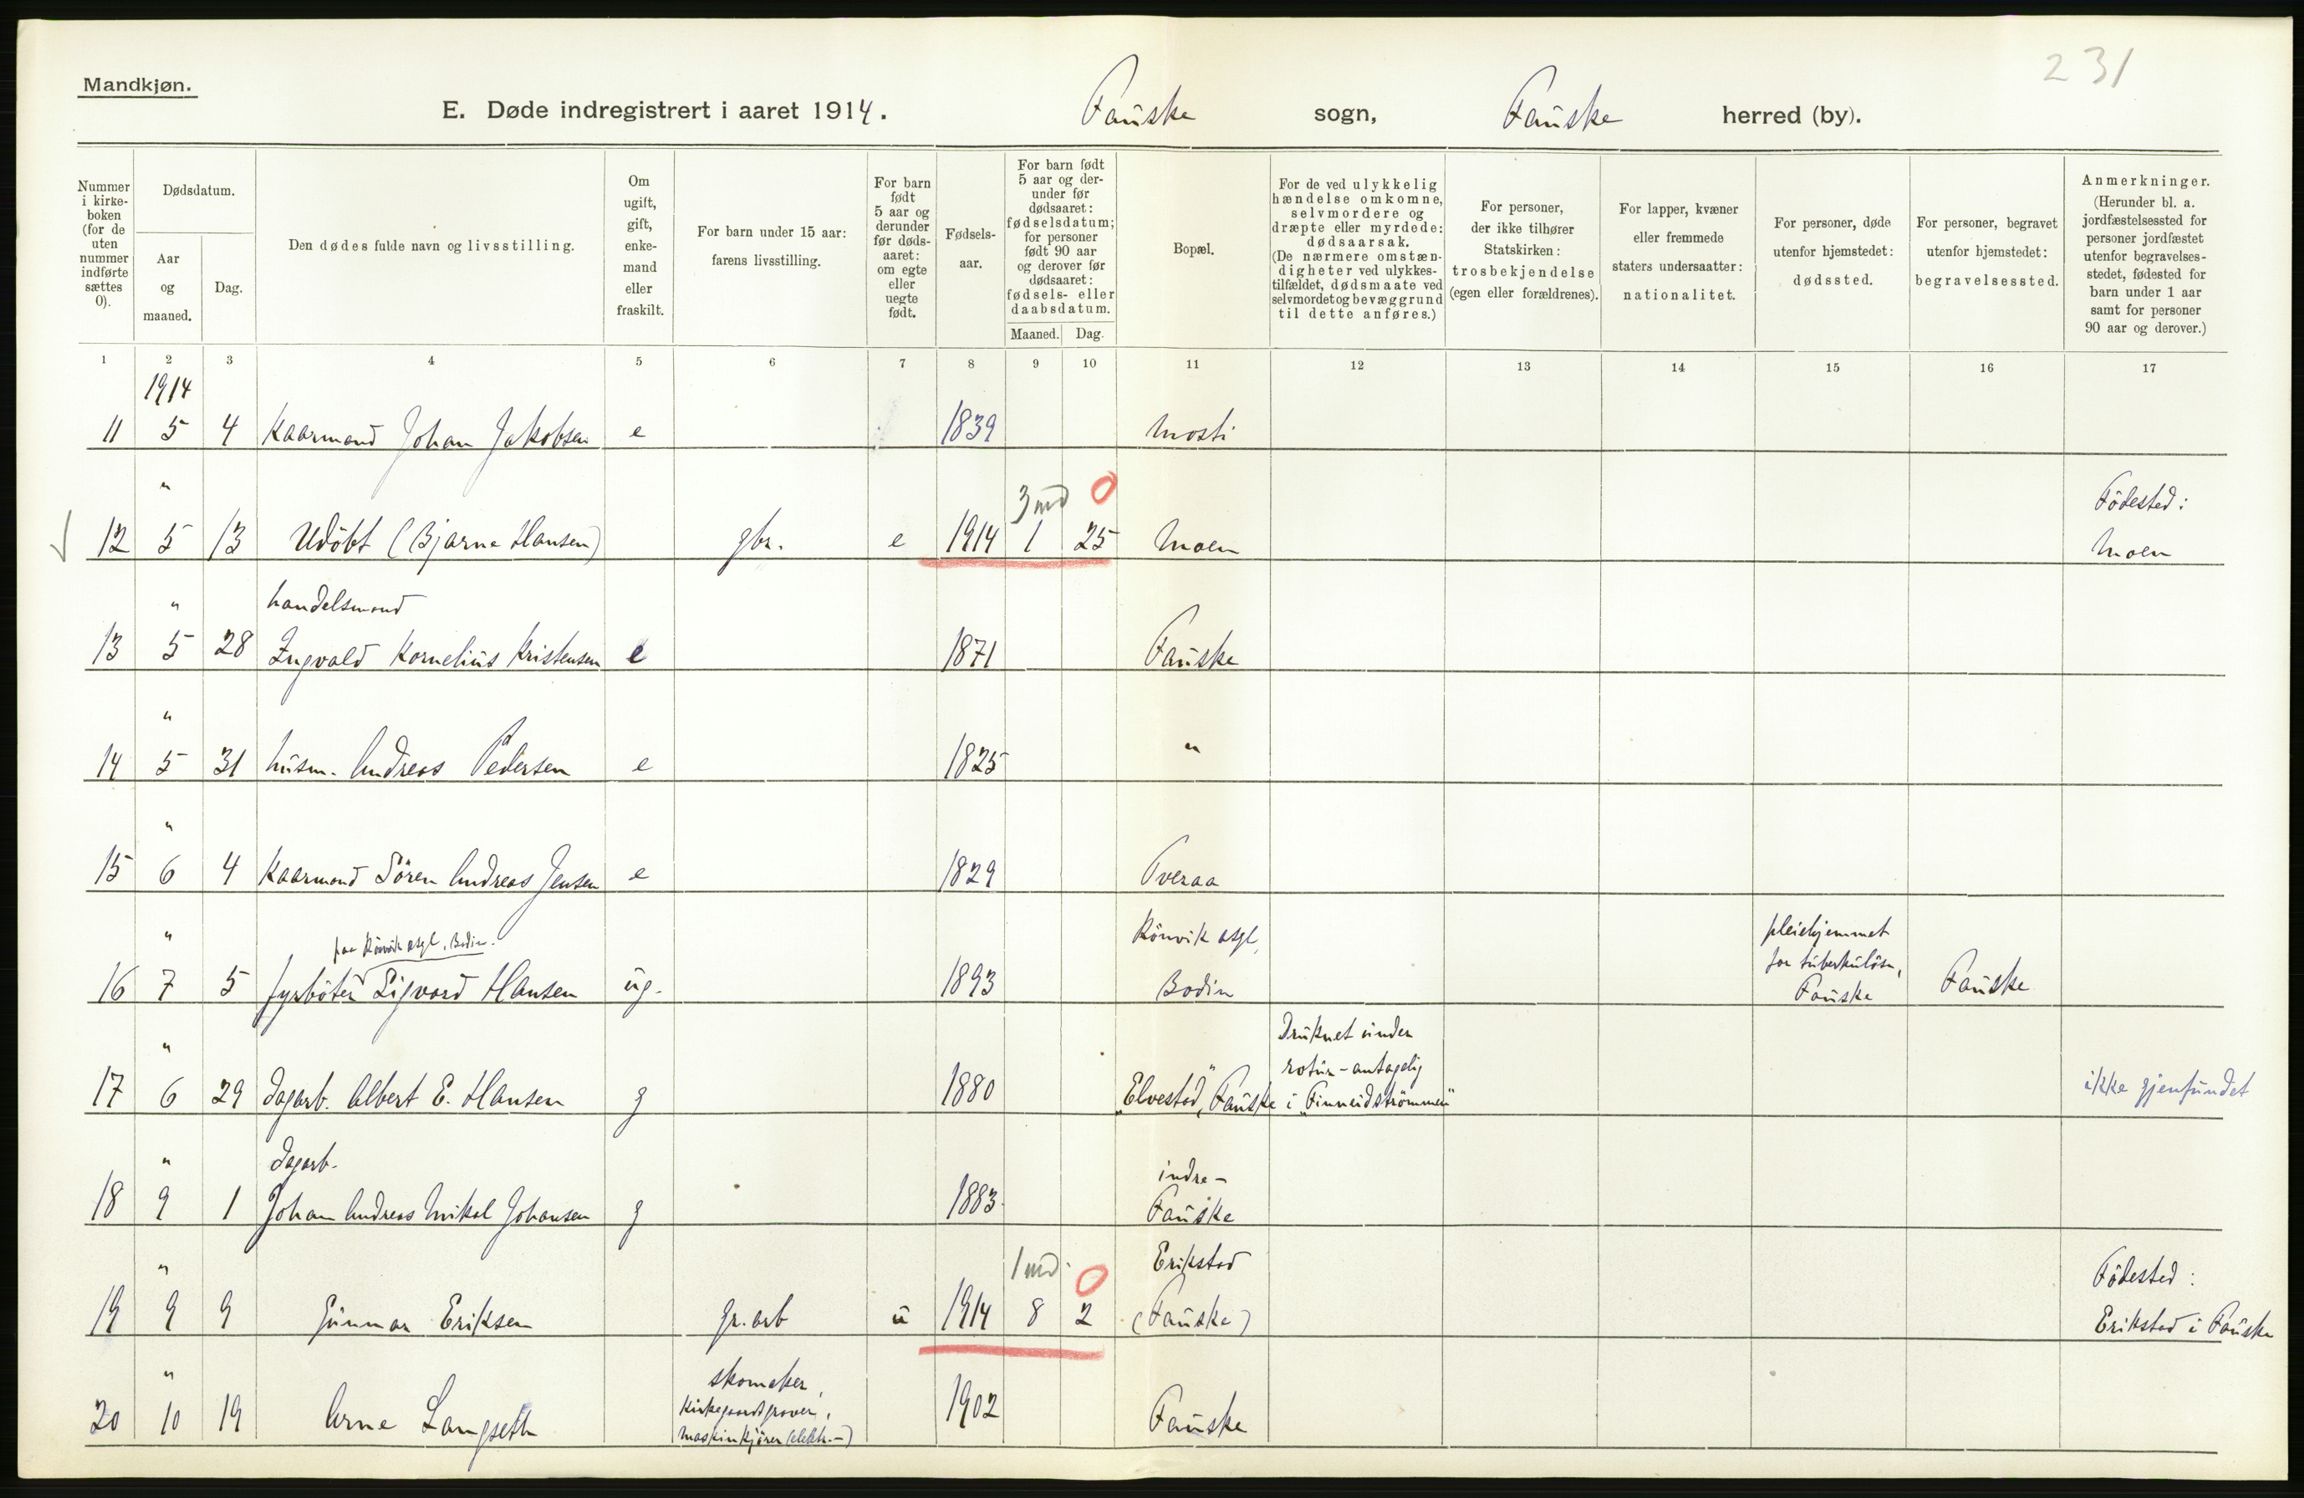 231
Mandkjøn.
E. Døde indregistrert i aaret 1914. Fauske sogn, Fauske herred (by).
Nummer i kirkeboken (for de uten nummer indførte sættes 0).
Dødsdatum.
Aar og maaned.
Dag.
Den dødes fulde navn og livsstilling.
Om ugift, gift, enkemand eller fraskilt.
For barn under 15 aar: farens livsstilling.
For barn født 5 aar og derunder før dødsaaret: om egte eller uegte født.
Fødselsaar.
For barn født 5 aar og derunder før dødsaaret: fødselsdatum; for personer født 90 aar og derover før dødsaaret: fødsels- eller daabsdatum.
Maaned. Dag.
Bopæl.
For de ved ulykkelig hændelse omkomne, selvmordere og dræpte eller myrdede: dødsaarsak. (De nærmere omstændigheter ved ulykkestilfældet, dødsmaate ved selvmordet og bevæggrund til dette anføres.)
For personer, der ikke tilhører Statskirken: trosbekjendelse (egen eller forældrenes).
For lapper, kvæner eller fremmede staters undersaatter: nationalitet.
For personer, døde utenfor hjemstedet: dødssted.
For personer, begravet utenfor hjemstedet: begravelsessted.
Anmerkninger. (Herunder bl. a. jordfæstelsessted for personer jordfæstet utenfor begravelsesstedet, fødested for barn under 1 aar samt for personer 90 aar og derover.)
1 2 3 4 5 6 7 8 9 10 11 12 13 14 15 16 17
1914
11 5 4 Kaarmand Johan Jakobsen e 1839 Mosti
" 3 md 0 Födested:
12 5 13 Udöbt (Bjarne Hansen) gbr. e 1914 1 25 Moen Moen
" handelsmand
13 5 28 Ingvald Kornelius Kristensen e 1871 Fauske
"
14 5 31 husm. Andreas Pedersen e 1825 "
"
15 6 4 Kaarmand Sören Andreas Jensen e 1829 Tveraa
" paa Rönvik asyl, Bodin. Rönvik asyl, pleiehjemmet for tuberkulöse,
16 7 5 fyrböter Sigvard Hansen ug. 1893 Bodin Fauske Fauske
" Druknet under rotur - antagelig
17 6 29 Dagarb. Albert E. Hansen g 1880 "Elvestad", Fauske i "Finneidströmmen" ikke gjenfundet
" Dagarb. indre-
18 9 1 Johan Andreas Mikal Johansen g 1883 Fauske
" 1 md. 0 Erikstad Födested:
19 9 9 Gunnar Eriksen gr.arb u 1914 8 2 (Fauske) Erikstad i Fauske
" skomaker, kirkegaardsgraver,
20 10 19 Arne Langseth maskinkjörer (elektr.-) 1902 Fauske